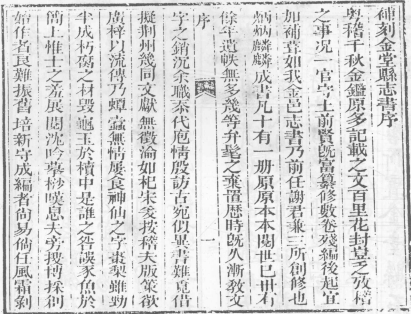 補刻金堂縣志書序
粤稽千秋金鑑原多記載之文百里花封豈乏攷稽
之事况一官守土前賢既富纂修數卷殘編後起宜
加補葺如我金邑志書乃前任謝君兼三所創修也
炳炳麟麟成書凡十有一册原原本本閱世已卅有
餘年遺軼無多幾等弁髦之棄置歷時既久漸教文
序 一
字之銷沉余職忝代庖情殷訪古宛似異書難覓借
擬荆州幾同文獻無徵淪如杞宋爰按稽夫版策欲
廣梓以流傳乃蟫蠹無情屡食神仙之字棗梨雖勁
半成朽腐之材毁龜玉於櫝中是誰之咎誤豕魚於
簡上惟士之羞展閱沈吟摹抄嘆息夫旁搜博採創
始作者良難振舊培新守成編者尚易倘任風霜剝